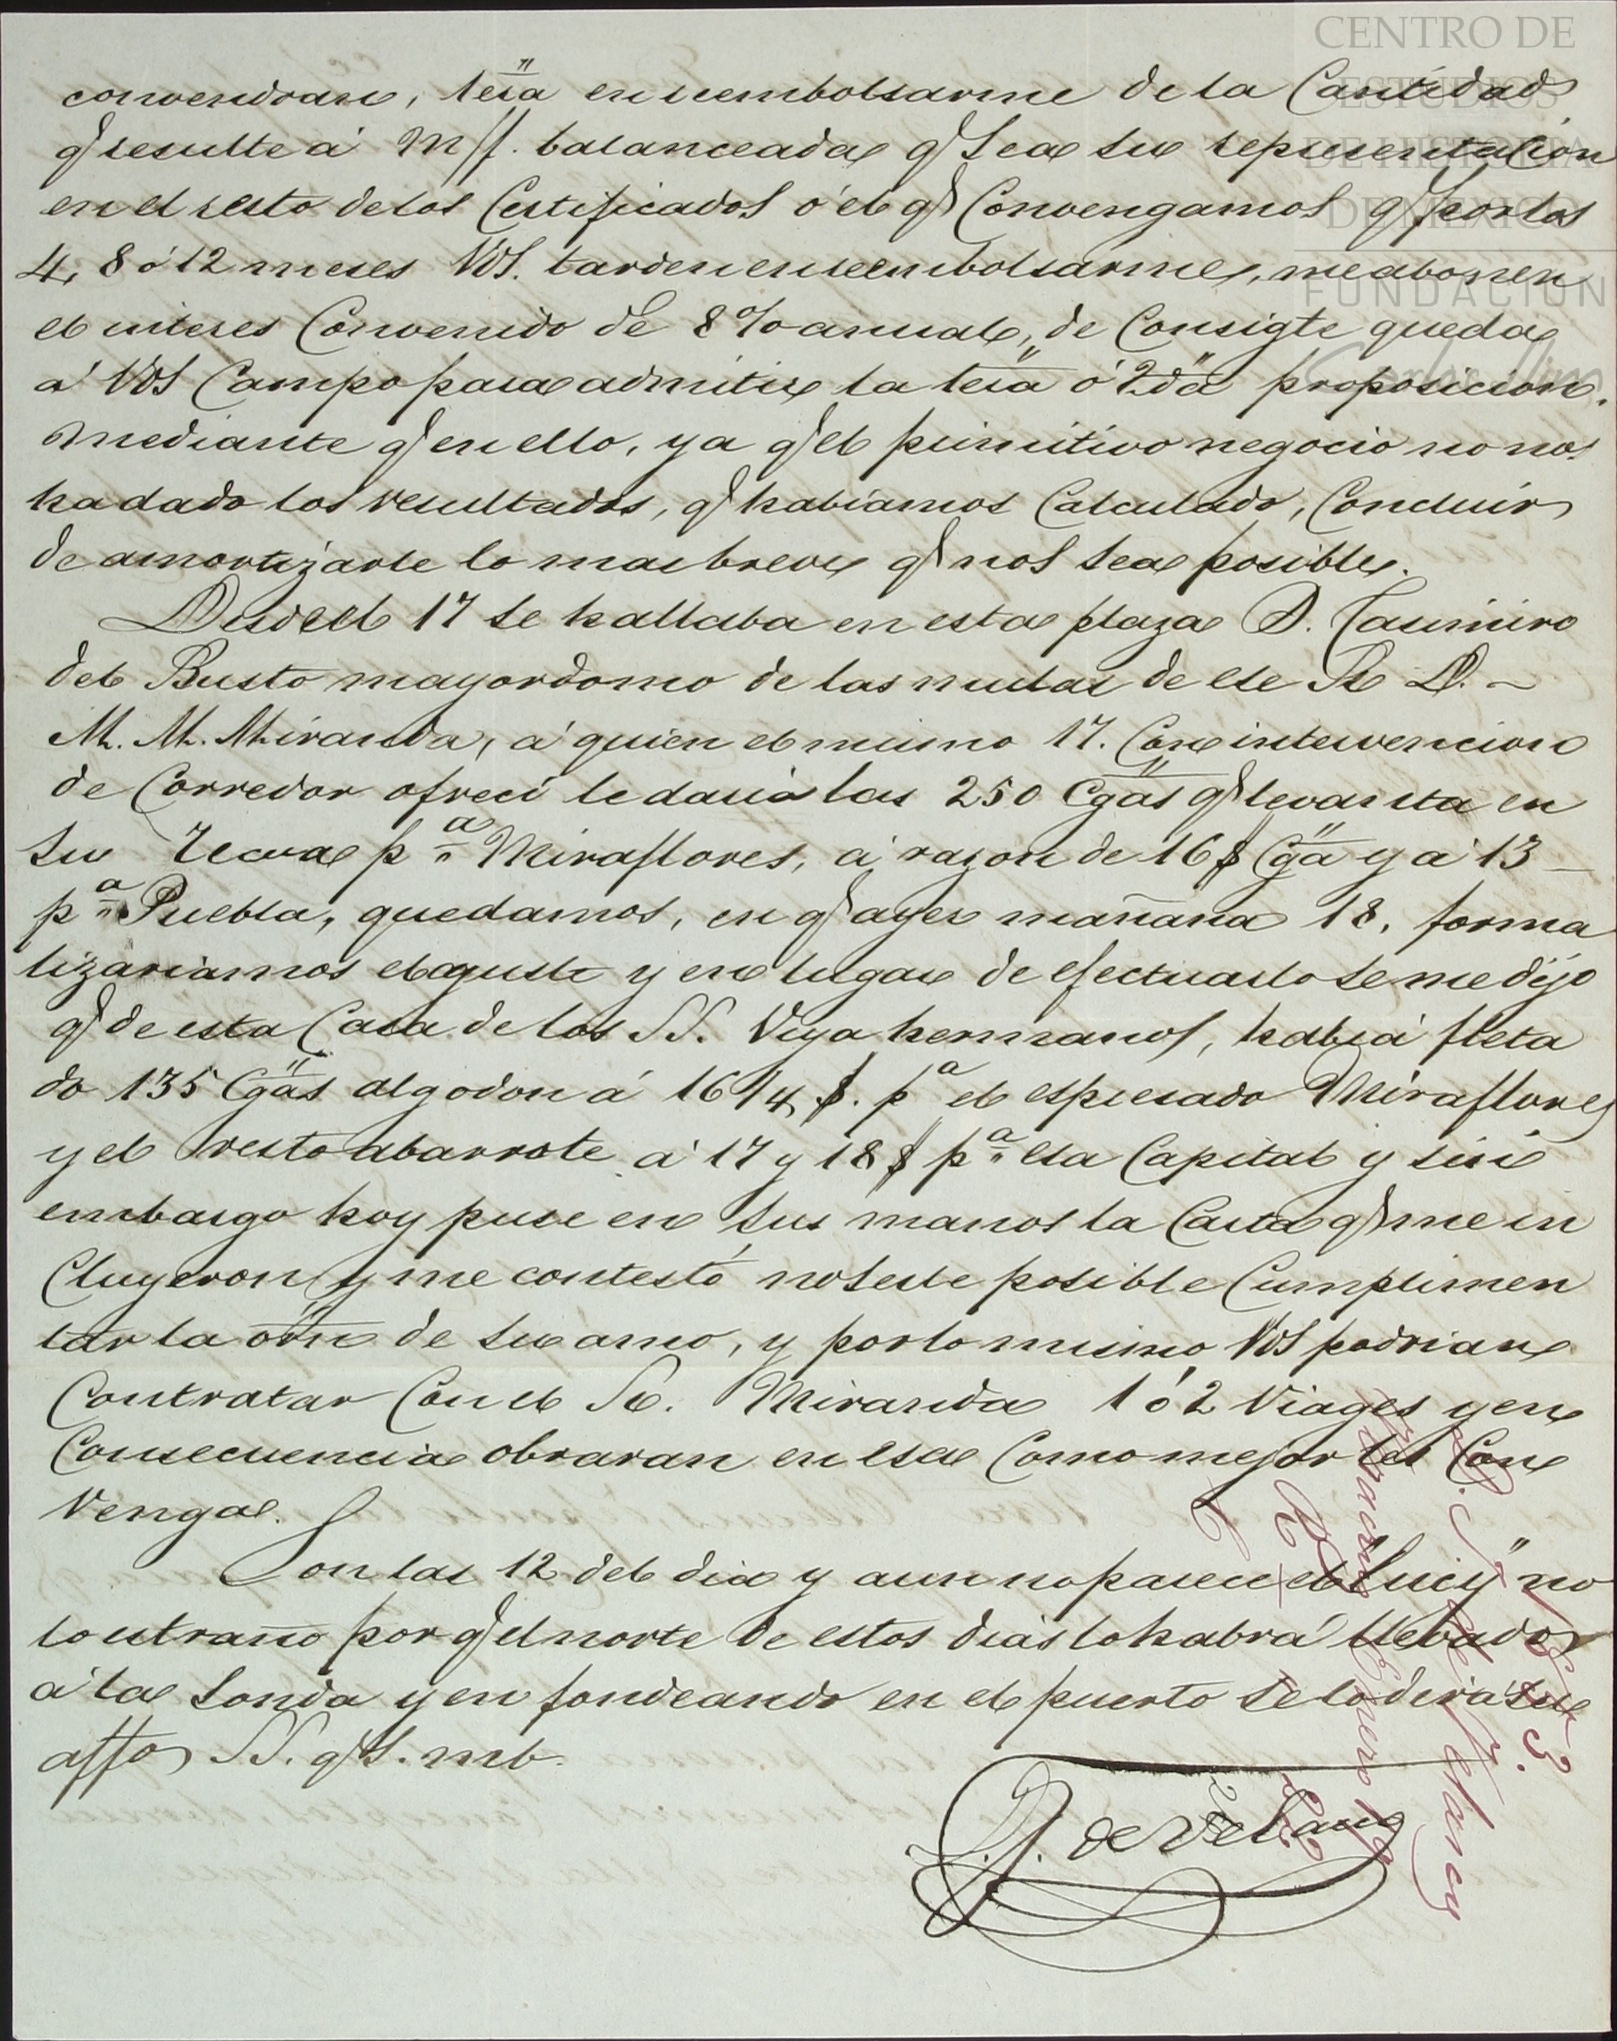 CENTRO DE
ESTUDIOS
DE HISTORIA
DE MEXICO
FUNDACION
Carlos Slim
convendran, 1era en reembolsarme de la Cantidad
q̃ resulte á M/f. balanceada q̃ sea su representacion
en el resto de los Certificados ó el q̃ Convengamos q̃ por los
4, 8 ó 12 meses VdS. tarden en reembolsarme, me abonen
el interes Convenido de 8 % anual, de Consigte queda
á VdS Campo para admitir la 1era ó 2da proposicion.
mediante q̃ en ello, ya q̃ el primitivo negocio no nos
ha dado los resultados, q̃ habiamos Calculado, Concluir
de amortizarle lo mas breve q̃ nos sea posible.
Desde el 17 se hallaba en esta plaza D. Casimiro
del Busto mayordomo de las mulas de ese Sr D. ~
M. M. Miranda, á quien el mismo 17. Con intervencion
de Corredor ofrecí le daria las 250 Cgas q̃ levanta en
su recua pa Miraflores, á razon de 16 $ Cga y a 13 —
pa Puebla, quedamos, en q̃ ayer mañana 18, forma
lizariamos el ajuste y en lugar de efectuarlo se me dijo
q̃ de esta Casa de los SS. Viya hermanos, habiá fleta
do 135 Cgas algodon á 16 1/4 $. pa el espresado Miraflores
y el resto abarrote á 17 y 18 $ pa esa Capital y sin
embargo hoy puse en sus manos la Carta q̃ me in
Cluyeron y me contestó no serle posible Cumplimen
tar la orñ de su amo, y por lo mismo VdS podrian
Contratar Con el Sr. Miranda 1 ó 2 Viages y en
Consecuencia obraran en esa Como mejor les Con
Venga.
Son las 12 del dia y aun no parece el "Lucy" no
lo estraño por q̃ el norte de estos dias lo habrá llevado
á la Sonda y en fondeando en el puerto se lo dirá su
affo SS. q̃ S. mb.
D. J. de Velasco
Nº 3.
D. J. de Velasco
Veracruz Enero 19